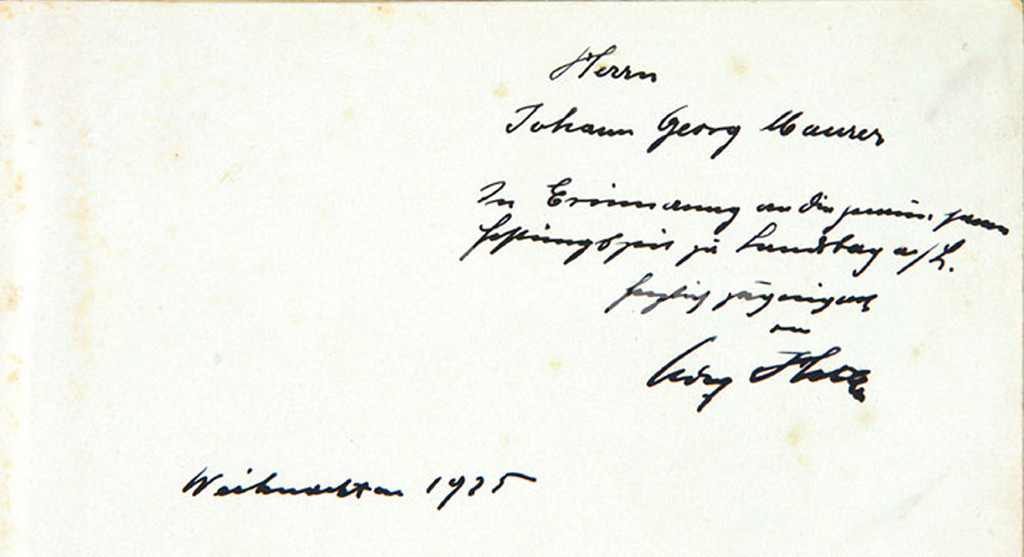 Herrn
Johann Georg Maurer
In Erinnerung an die gemeinsamen
Festungszeit zu Landsberg a/L.
herzlich zugeeignet
von
Weihnachten 1925